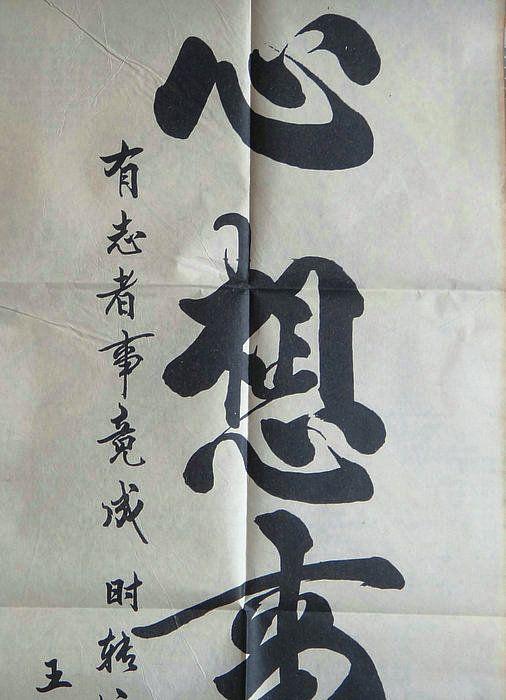 心想事
有志者事竟成 时转
王